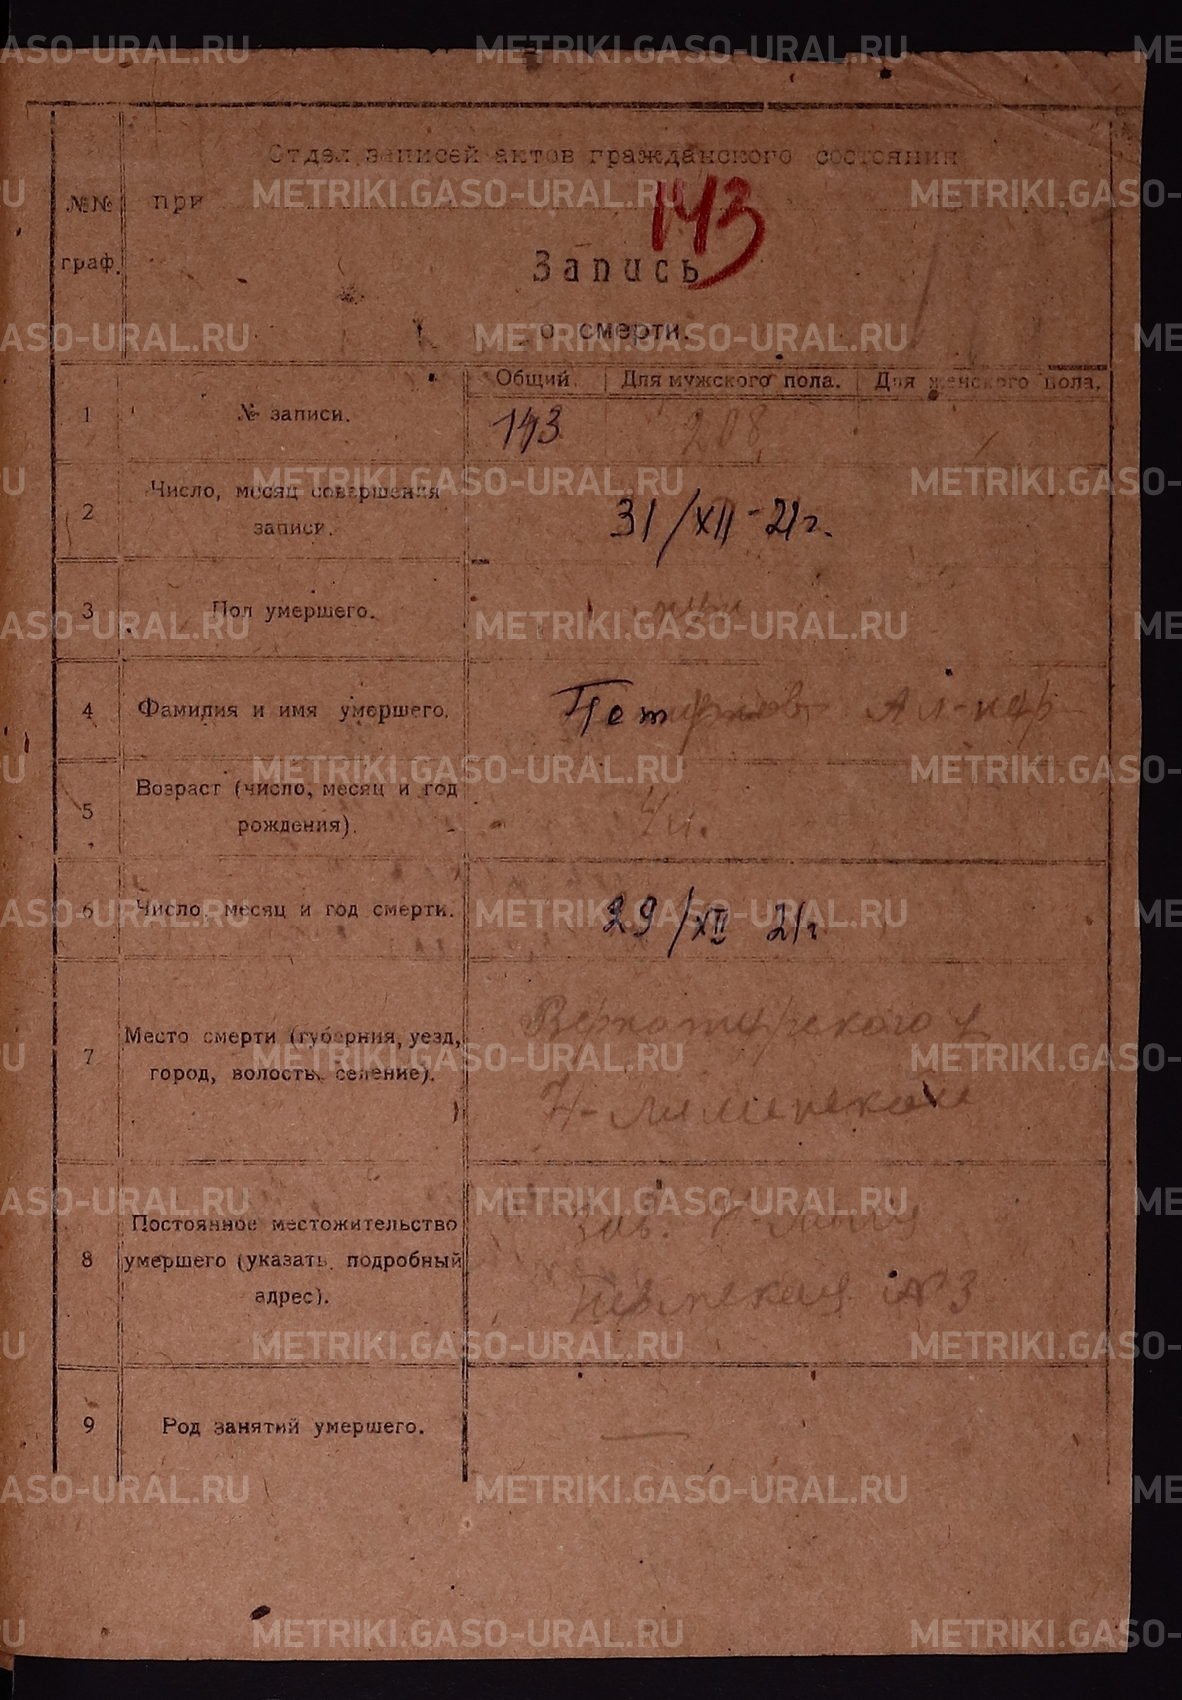 Отдел записей актов гражданского состояния
№№ граф.
при
143
Запись
о смерти.
Общий. Для мужского пола. Для женского пола.
1 № записи. 143 208
2 Число, месяц совершения
записи. 31/XII-21г.
3 Пол умершего. муж
4 Фамилия и имя умершего.
5 Возраст (число, месяц и год
рождения).
6 Число, месяц и год смерти. 29/XII 21г
7 Место смерти (губерния, уезд,
город, волость, селение).
Верхотурского у
8 Постоянное местожительство
умершего (указать подробный
адрес).
Зав.
Пермская №3
9 Род занятий умершего. —
METRIKI.GASO-URAL.RU